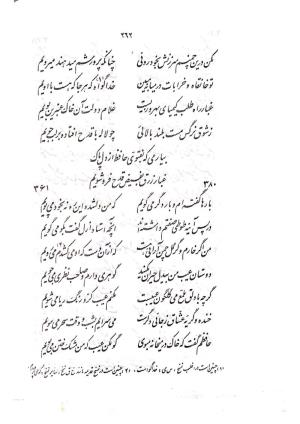 ۲۶۲
مکن درین چمنم سرزنش بخودروئی چنانکه پرورشم میدهند میرویم
تو خانقاه و خرابات در میانه مبین خدا گواه که هر جا که هست با اویم
غبار راه طلب کیمیای بهروزیست غلام دولت آن خاک عنبرین بویم
ز شوق نرگس مست بلند بالائی چو لاله با قدح افتاده بر لب جویم
بیار می که بفتوی حافظ از دل پاک
غبار زرق بفیض قدح فروشویم
۳۸۰ ۳۶۱
بارها گفته‌ام و بار دگر میگویم که من دلشده این ره نه بخود میپویم
در پس آینه طوطی صفتم داشته‌اند آنچه استاد ازل گفت بگو میگویم
من اگر خارم و گر گل چمن آرائی هست که از آن دست که او
دوستان عیب من بیدل حیران مکنید گوهری دارم و صاحب نظری میجویم
گرچه با دلق ملمع می گلگون عیبست مکنم عیب کزو رنگ ریا میشویم
خنده و گریه عشاق ز جائی دگرست میسرایم بشب و وقت سحر میمویم
حافظم گفت که خاک در میخانه مبوی گو مکن عیب که من مشک ختن میبویم